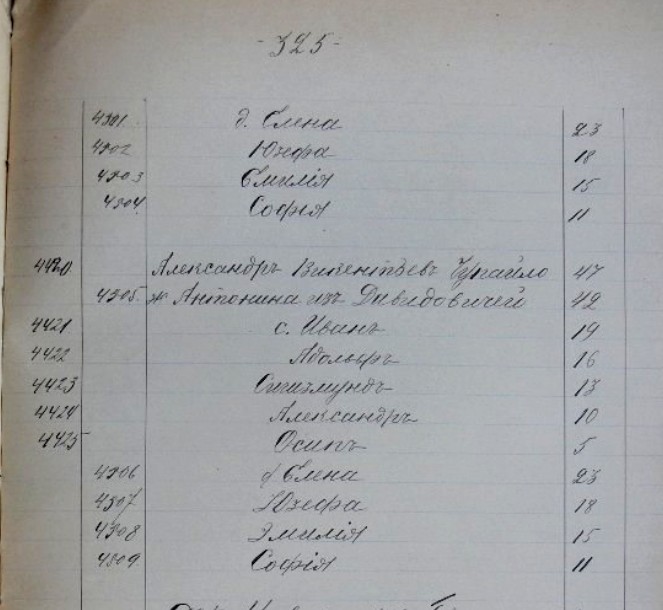 - 325 -
4301 д. Елена 23
4302 Юзефа 18
4303 Емилія 15
4304 Софія 11
4420 Александръ Викентьевъ 47
4305 ж Антонина изъ Давидовичей 42
4421 с. Иванъ 19
4422 Адольфъ 16
4423 Сигизмундъ 13
4424 Александръ 10
4425 Осипъ 5
4306 д Елена 23
4307 Юзефа 18
4308 Эмилія 15
4309 Софія 11